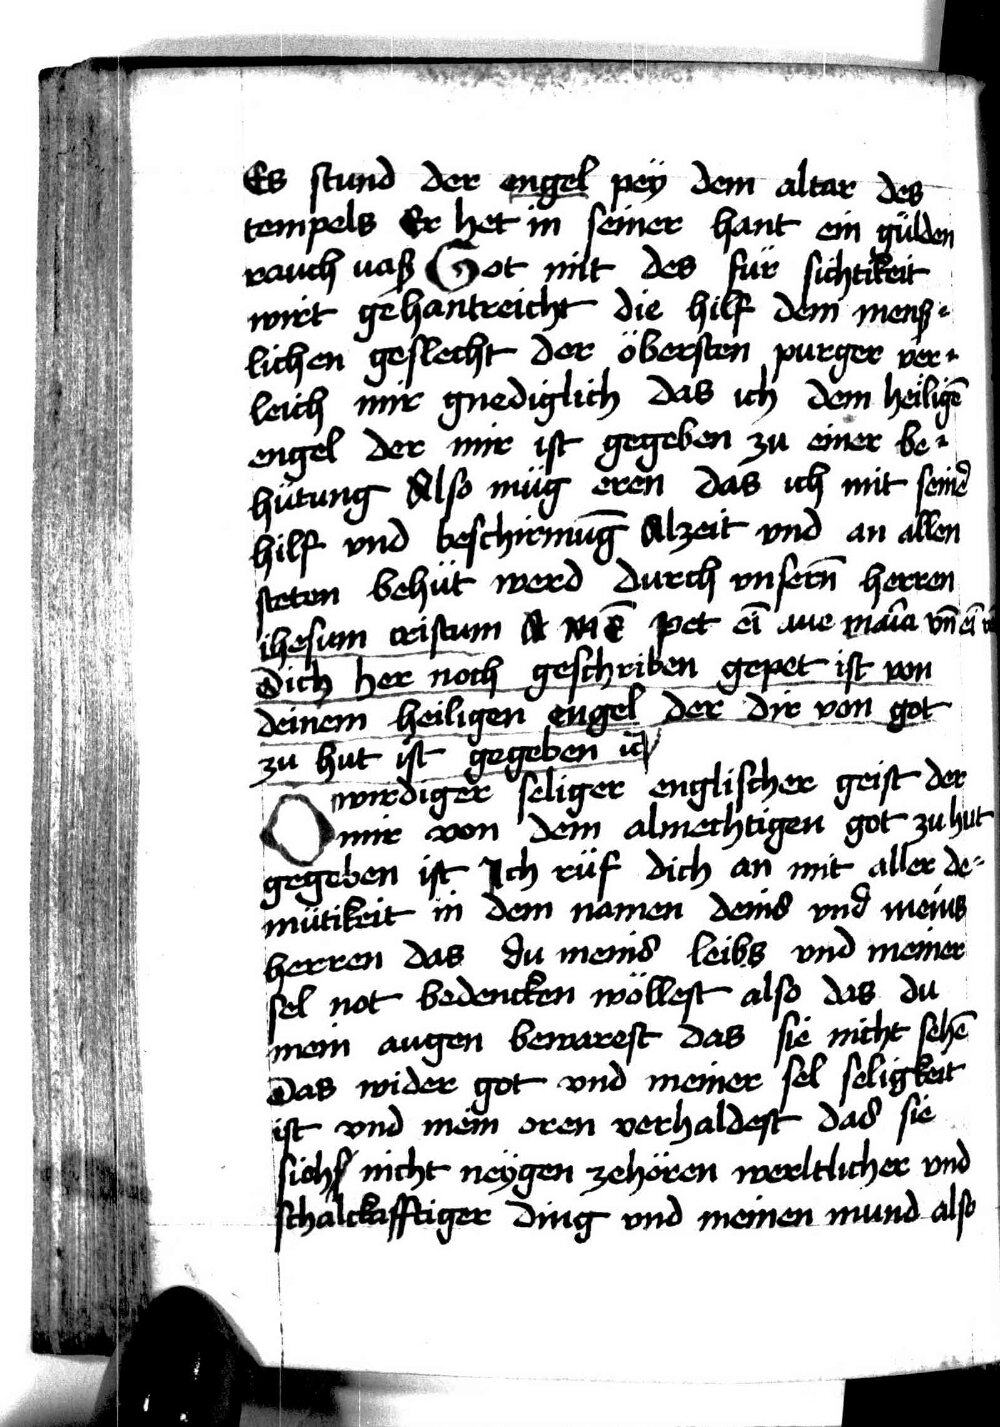 Es stund der engel peÿ dem altar des
tempels Er het in seiner hant ein gülden
rauch uaß Got mit des für sichtikeit
wirt gehantreicht die hilf dem mensch⸗
lichen geslecht der öbersten purger ver⸗
leich mir gnediglich das ich dem heiligē
engel der mir ist gegeben zu einer be⸗
hütung Also müg eren das ich mit seinē
hilf vnd beschirmūg Alzeit vnd an allen
steten behüt werd durch vnsern̄ herren
ihesum cristum A M Ē Pet eī aue maīa vn̄ eī
Dich her noch geschriben gepet ist von
deinem heiligen engel der dir von got
zu hut ist gegeben
O wirdiger seliger englischer geist der
mir von dem almechtigen got zu hut
gegeben ist Ich rüf dich an mit aller de⸗
mütikeit in dem namen deins vnd meins
herren das du meins leibs vnd meiner
sel not bedencken wöllest also das du
mein augen bewarest das sie nicht sehē
Das wider got vnd meiner sel seligkeit
ist vnd mein oren verhaldest das sie
sich nicht neÿgen zehören werltlicher vnd
schalckafftiger ding vnd meinen mund also